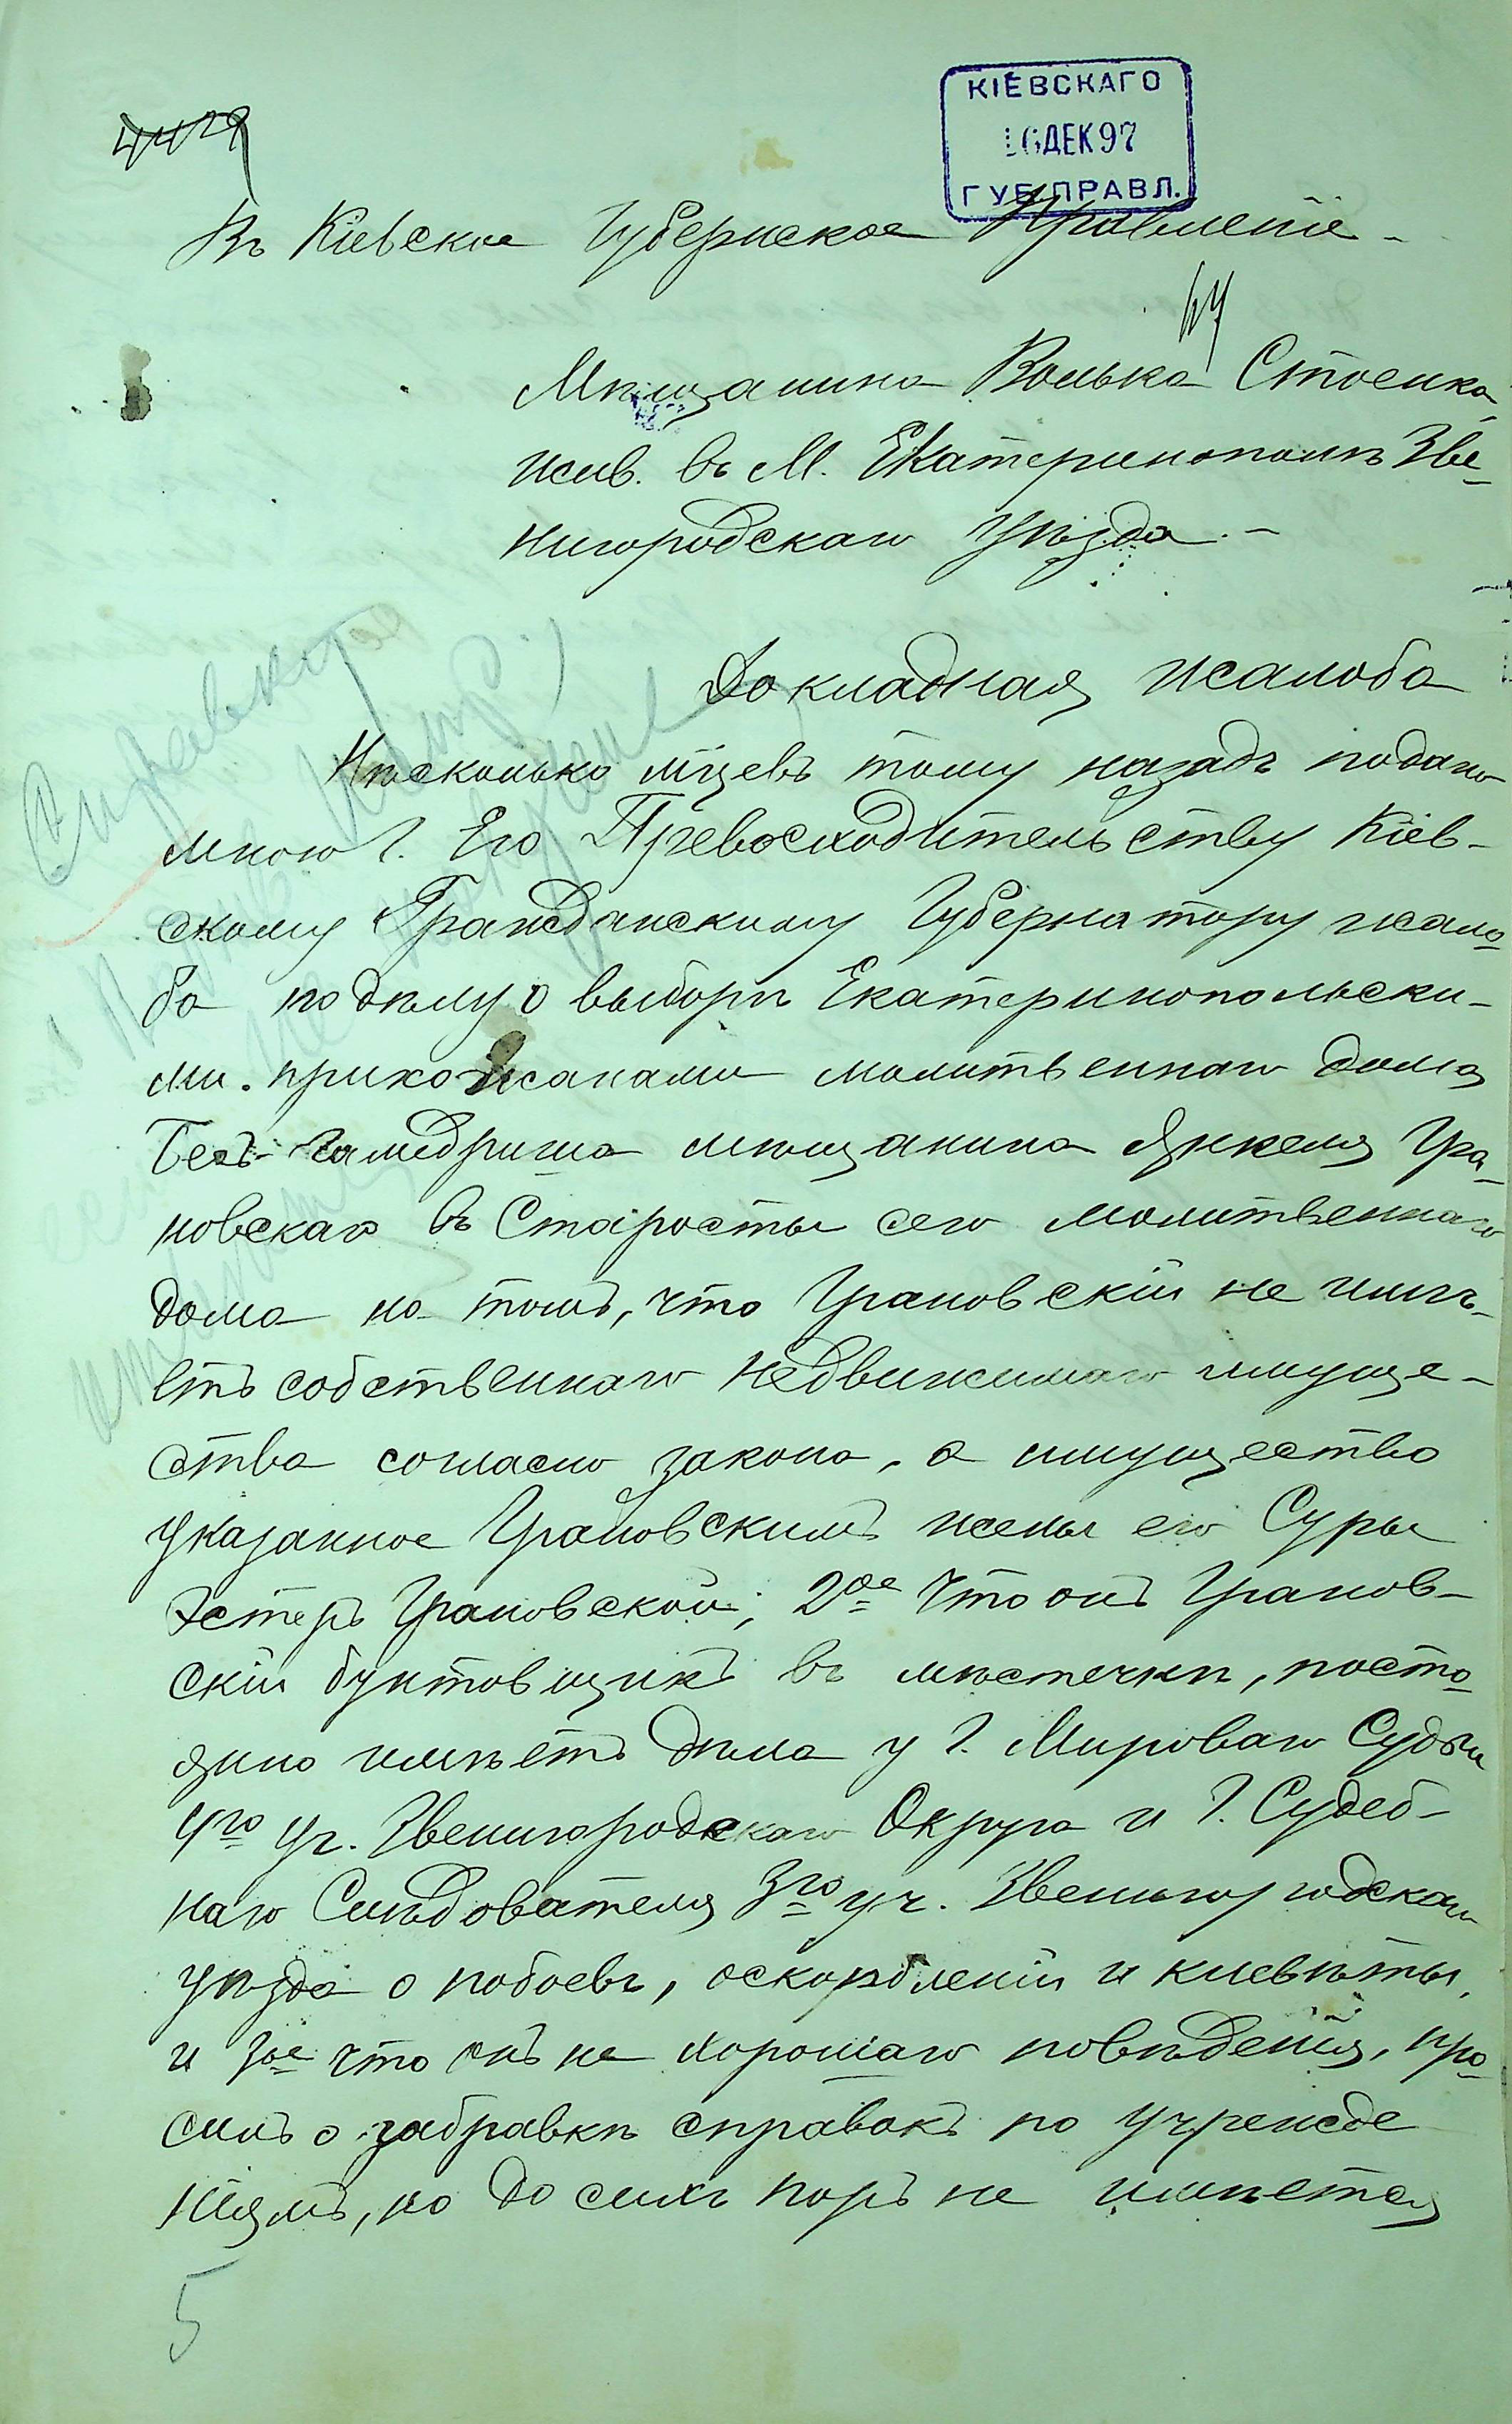 КІЕВСКАГО
16 ДЕК 97
ГУБ. ПРАВЛ.
4429
Въ Кіевское Губернское Правленіе -
Мѣщанина Волька Стоенка,
жив. въ М. Екатеринополѣ Зве-
нигородскаго Уѣзда. -
Докладная жалоба
Нѣсколько мѣцевъ тому назадъ подано
мною Г. Его Превосходительству Кіев-
скому Гражданскому Губернатору жало-
ба по дѣлу о выборѣ Екатеринопольски-
ми прихожанами молитвеннаго дома
Бетъ-Гамедриша мѣщанина Янкеля Гра-
новскаго въ Старосты сего молитвеннаго
дома но томъ, что Грановскій не имѣ-
етъ собственнаго недвижимаго имуще-
ства согласно закона, а имущество
указанное Грановскимъ жены его Суры
Эстеръ Грановской; 2ое Что онъ Гранов-
скій бунтовщикъ въ мѣстечкѣ, посто-
янно имѣетъ дѣла у Г. Мироваго Судьи
4го уч. Звенигородскаго Округа и Г. Судеб-
наго Слѣдователя 3го уч. Звенигородскаго
уѣзда о побоевъ, оскорбленіи и клевѣты,
и 3ое что онъ не хорошаго повѣденія, про-
силъ о забравкѣ справокъ по учрежде
ніямъ, но до сихъ поръ не имѣется
Справка
5